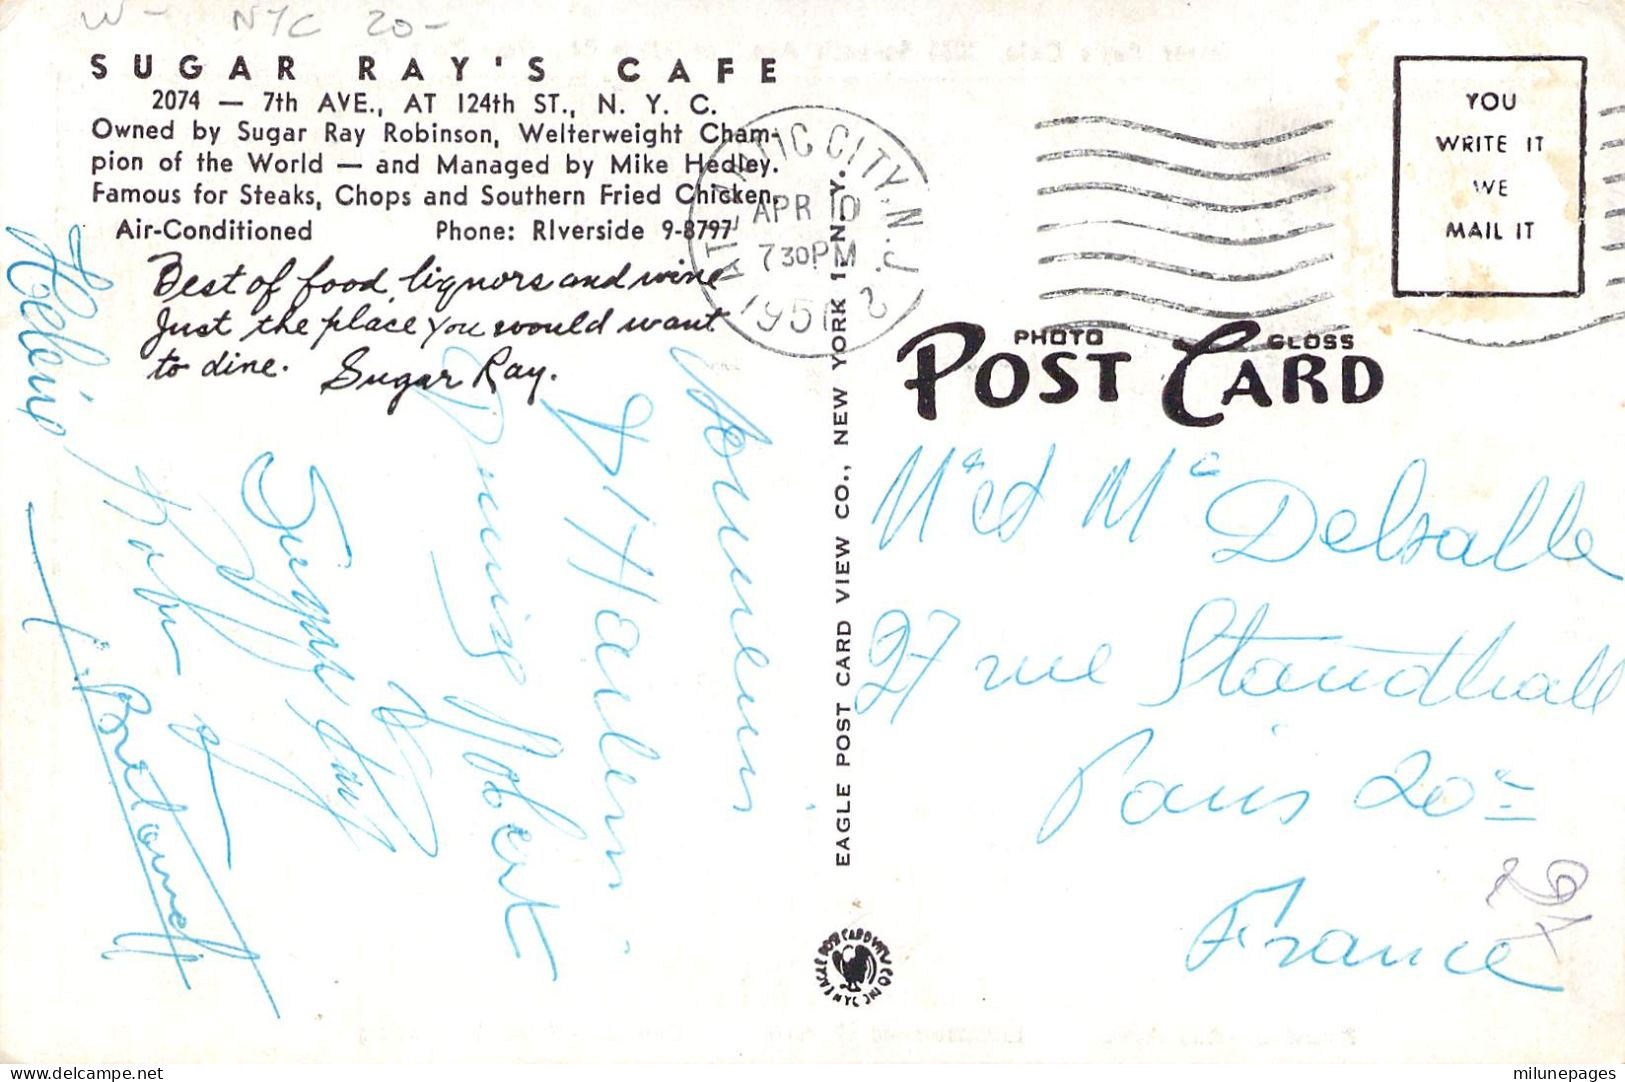 W - NYC 20-
SUGAR RAY'S CAFE
2074 — 7th AVE., AT 124th ST., N. Y. C.
Owned by Sugar Ray Robinson, Welterweight Cham-
pion of the World — and Managed by Mike Hedley.
Famous for Steaks, Chops and Southern Fried Chicken.
Air-Conditioned Phone: RIverside 9-8797
Best of food, liquors and wine
Just the place you would want
to dine. Sugar Ray.
Souvenir
d Harlem
Robert
Sugar Ray
ATLANTIC CITY, N.J.
APR
730PM
195
YOU
WRITE IT
WE
MAIL IT
PHOTO GLOSS
POST CARD
EAGLE POST CARD VIEW CO., NEW YORK 1, N. Y.
Mr et Me Delsalle
27 rue Standhall
Paris 20e
France
EAGLE POST CARD VIEW CO INC NYC
delcampe.net
milunepages